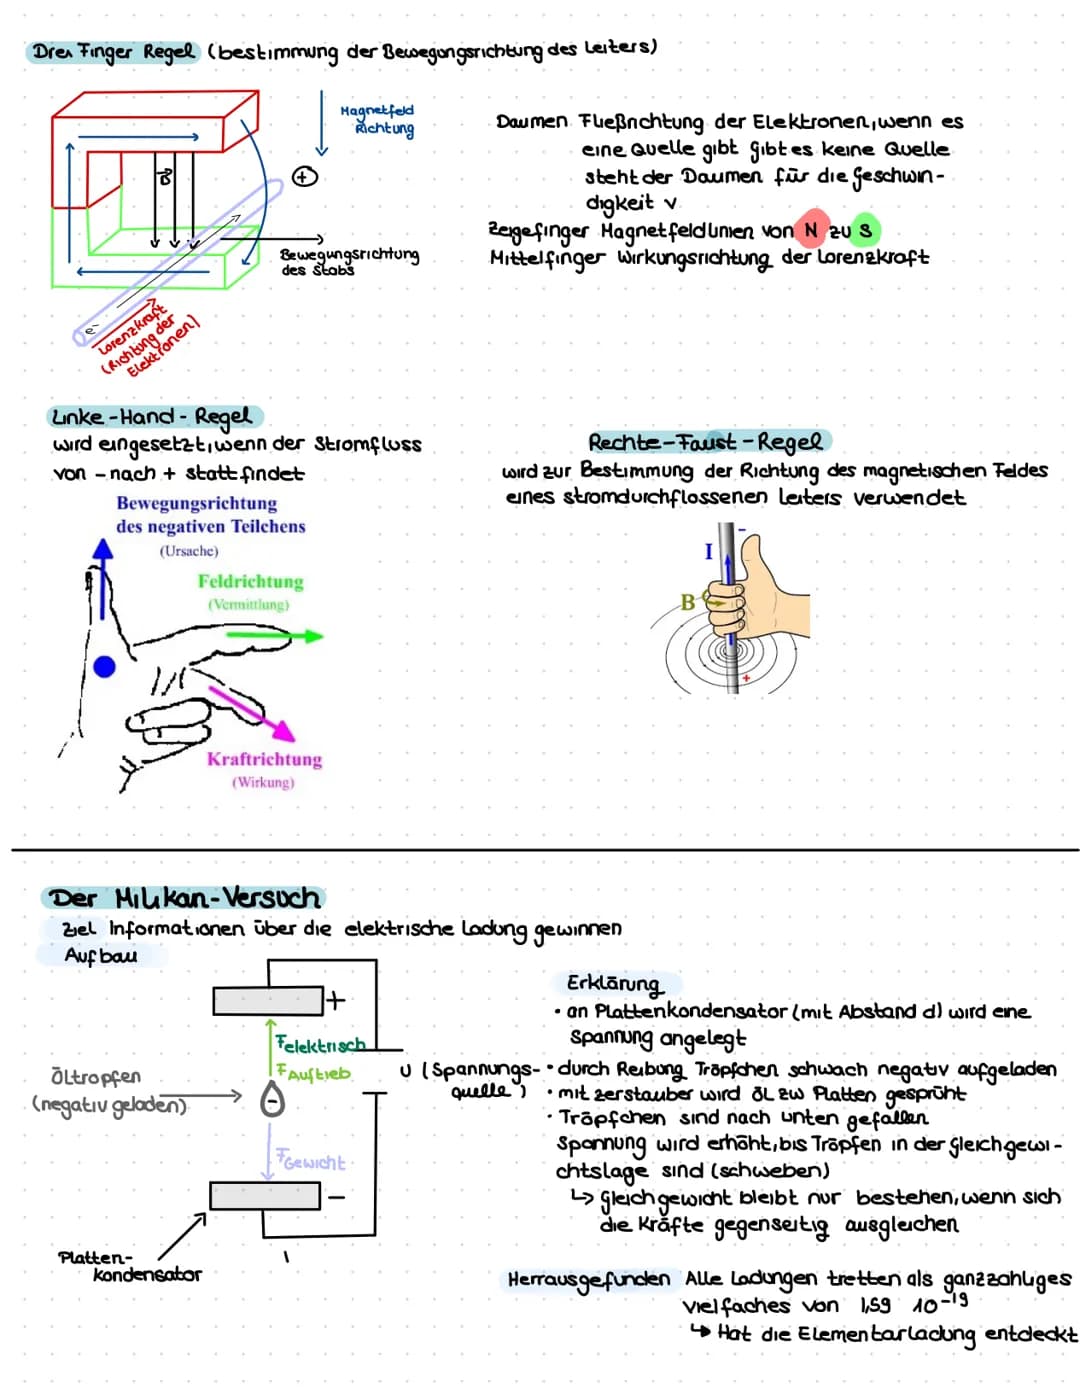 Drei Finger Regel (bestimmung der Bewegungsrichtung des Leiters)
Magnetfeld
Richtung
B
+
Bewegungsrichtung
des Stabs
e-
Lorenzkraft
(Richtung der
Elektronen)
Daumen Fließrichtung der Elektronen, wenn es
eine Quelle gibt gibt es keine Quelle
steht der Daumen für die Geschwin-
digkeit v
Zeigefinger Magnetfeldlinien von N zu S
Mittelfinger Wirkungsrichtung der Lorenzkraft
Linke-Hand-Regel
wird eingesetzt, wenn der Stromfluss
von - nach + stattfindet
Bewegungsrichtung
des negativen Teilchens
(Ursache)
Feldrichtung
(Vermittlung)
Kraftrichtung
(Wirkung)
Rechte-Faust-Regel
wird zur Bestimmung der Richtung des magnetischen Feldes
eines stromdurchflossenen Leiters verwendet
-
I
B
+
Der Milikan-Versuch
Ziel Informationen über die elektrische Ladung gewinnen
Aufbau
+
Felektrisch
FAuftrieb
Öltropfen
(negativ geladen)
-
FGewicht
-
Platten-
kondensator
U (Spannungs-
quelle)
Erklärung
• an Plattenkondensator (mit Abstand d) wird eine
Spannung angelegt
• durch Reibung Tröpfchen schwach negativ aufgeladen
• mit zerstauber wird ÖL zw Platten gesprüht
• Tröpfchen sind nach unten gefallen
Spannung wird erhöht, bis Tröpfen in der Gleichgewi-
chtslage sind (schweben)
↳ Gleichgewicht bleibt nur bestehen, wenn sich
die Kräfte gegenseitig ausgleichen
Herrausgefunden Alle Ladungen tretten als ganzzahliges
vielfaches von 1,59 10-19
↳ Hat die Elementarladung entdeckt